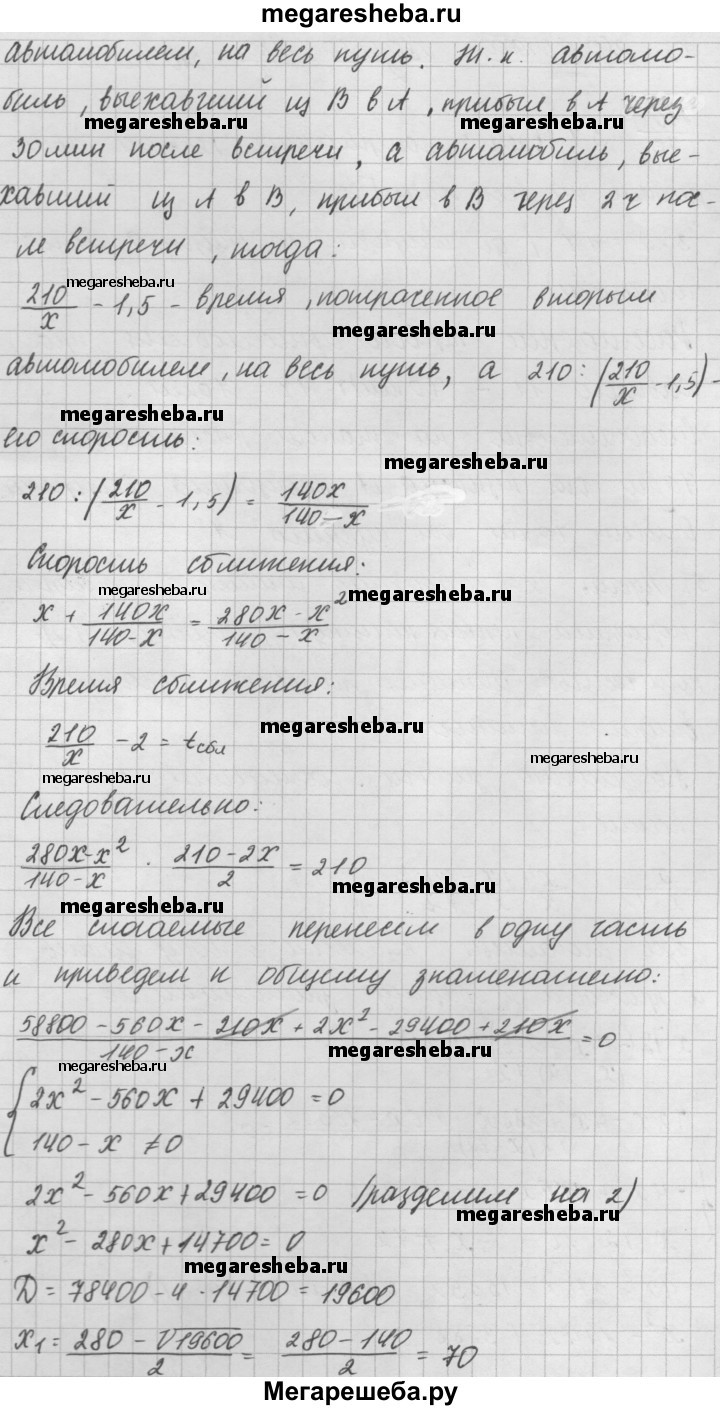 megaresheba.ru
автомобилем, на весь путь. Т.к. автомо-
биль, выехавший из В в А, прибыл в А через
megaresheba.ru megaresheba.ru
30 мин после встречи, а автомобиль, вые-
хавший из А в В, прибыл в В через 2 ч пос-
ле встречи, тогда:
megaresheba.ru
210/x - 1,5 - время, потраченное вторым
megaresheba.ru
автомобилем, на весь путь, а 210 : (210/x - 1,5) -
megaresheba.ru
его скорость:
megaresheba.ru
210 : (210/x - 1,5) = 140x/140-x
Скорость сближения:
megaresheba.ru megaresheba.ru
x + 140x/140-x = 280x-x²/140-x
Время сближения:
megaresheba.ru
210/x - 2 = tсбл
megaresheba.ru
megaresheba.ru
Следовательно:
280x-x²/140-x · 210-2x/2 = 210
megaresheba.ru
megaresheba.ru
Все слагаемые перенесем в одну часть
и приведем к общему знаменателю:
58800 - 560x - 210x + 2x² - 29400 + 210x/140-x = 0
megaresheba.ru
megaresheba.ru
{2x² - 560x + 29400 = 0
140 - x ≠ 0
2x² - 560x + 29400 = 0 (разделим на 2)
megaresheba.ru
x² - 280x + 14700 = 0
megaresheba.ru
D = 78400 - 4 · 14700 = 19600
x₁ = 280 - √19600/2 = 280-140/2 = 70
Мегарешеба.ру